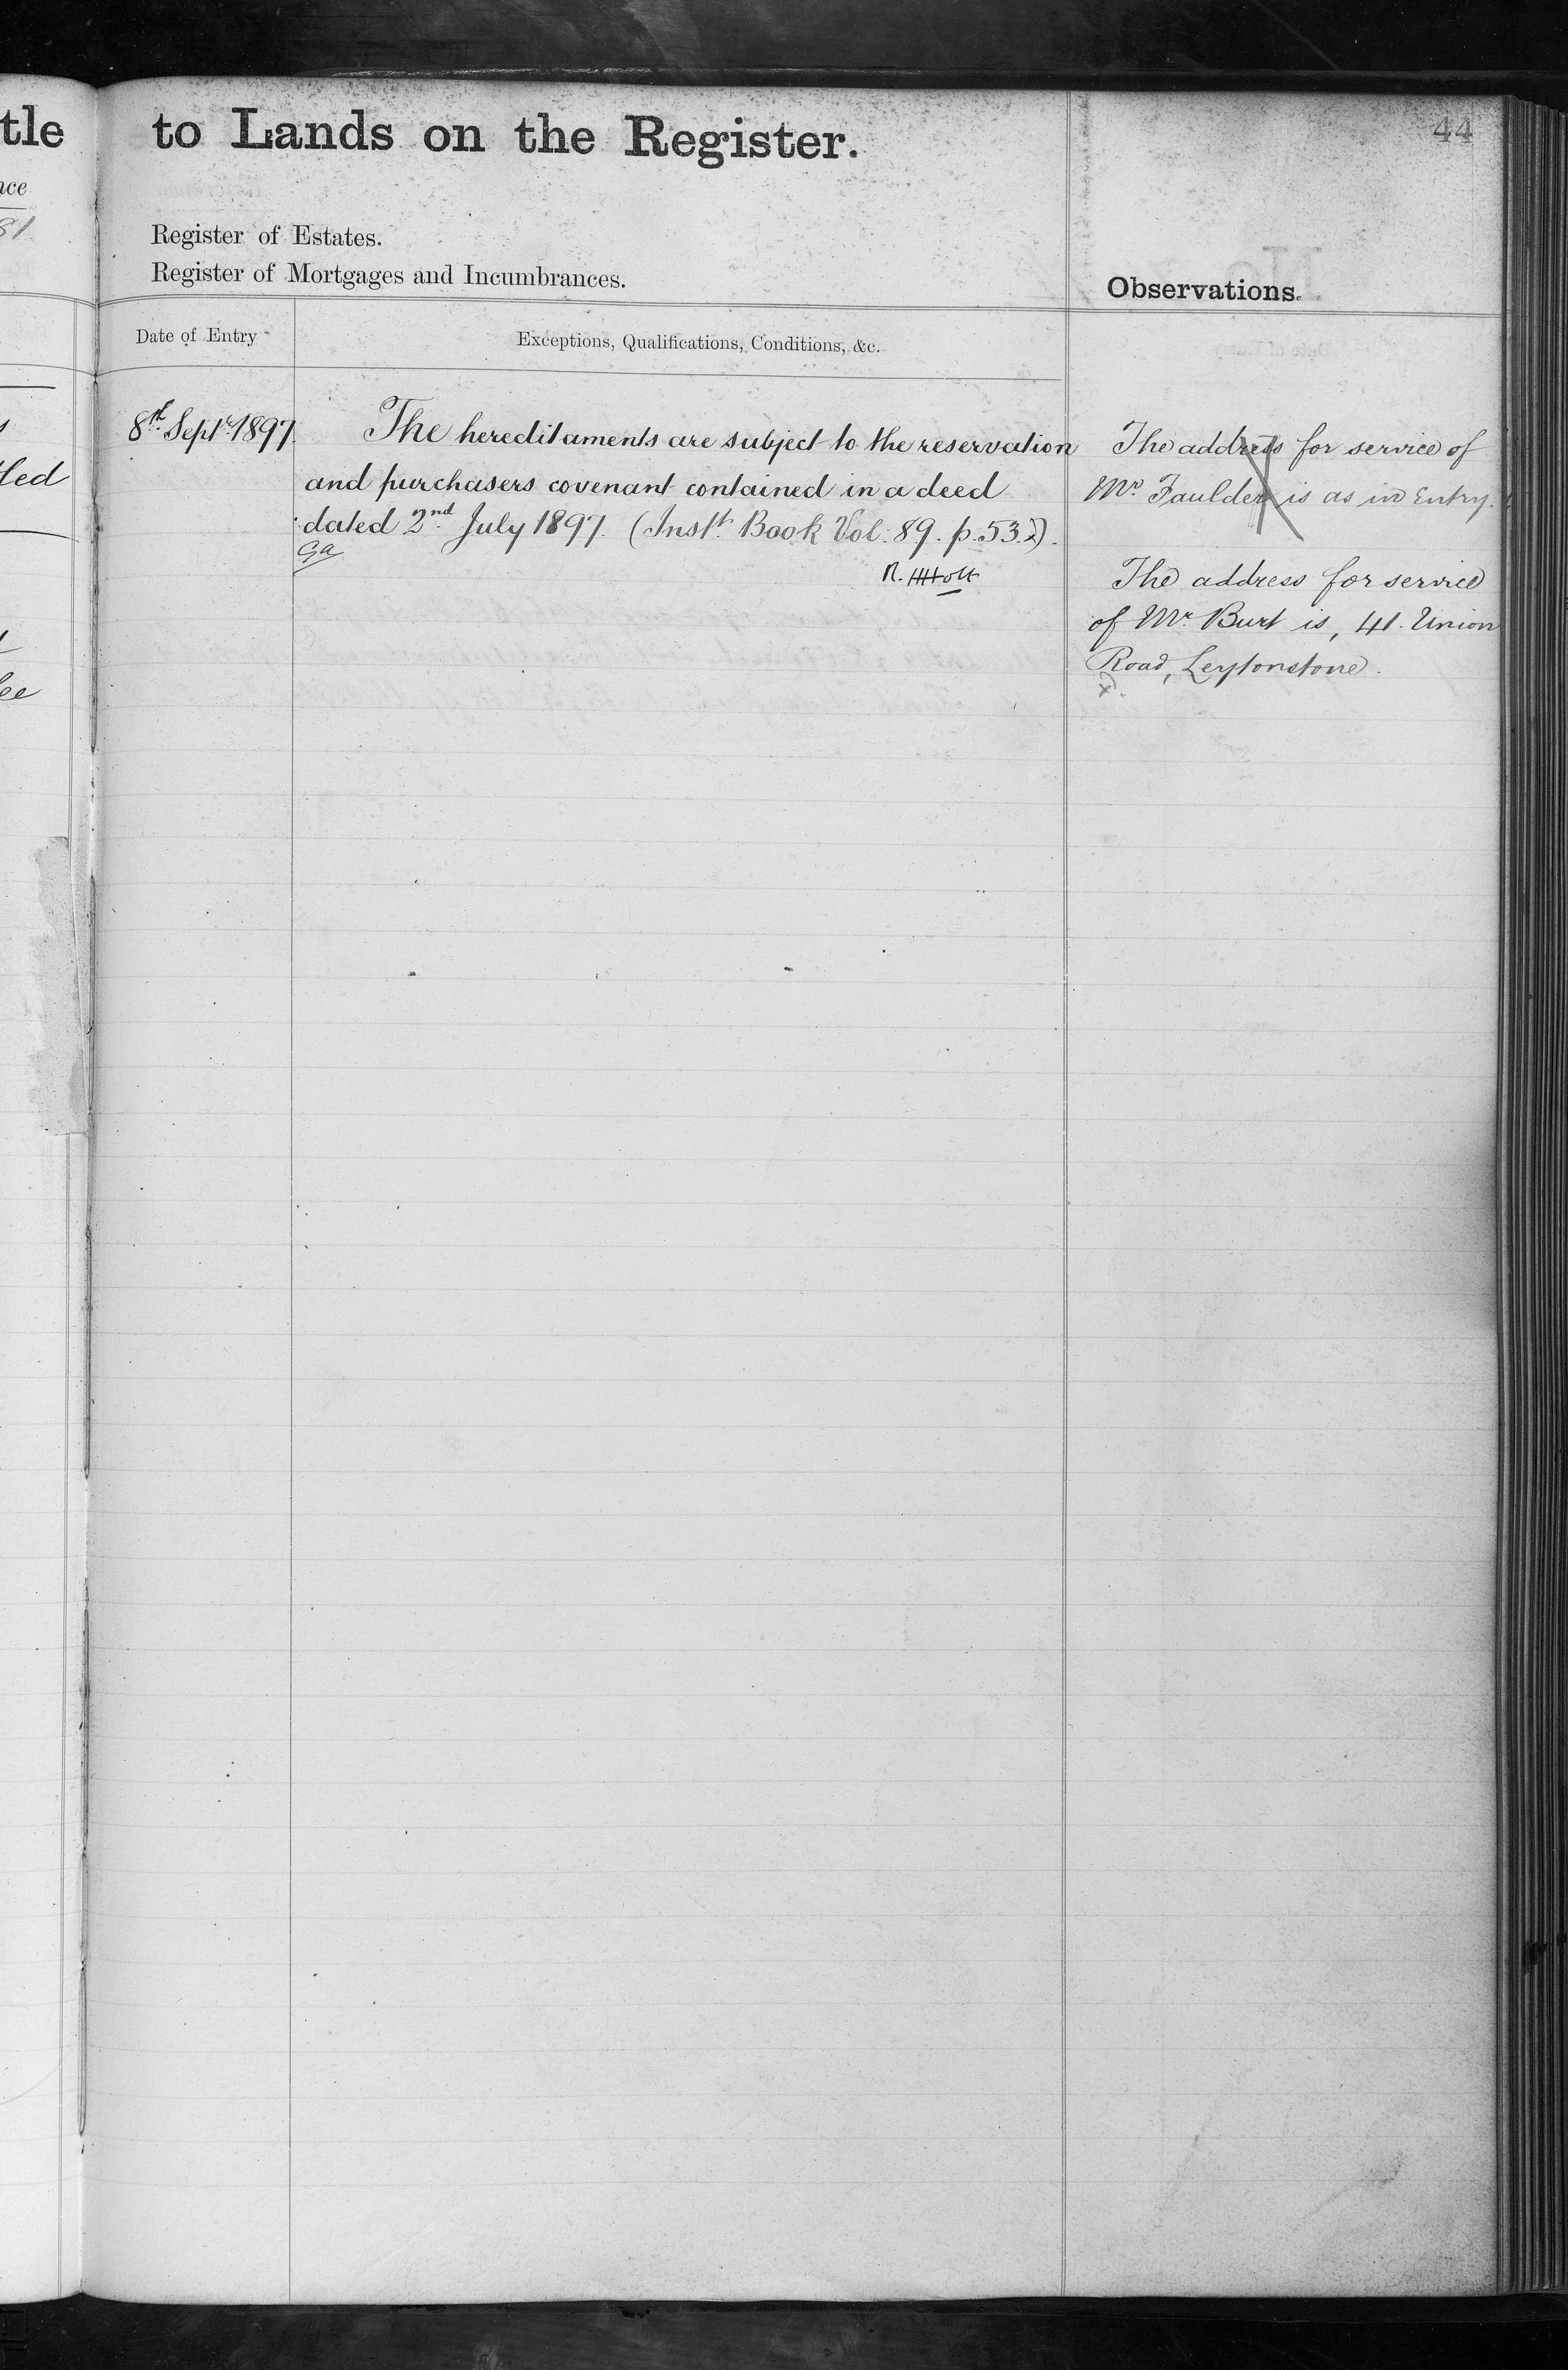 tle to Lands on the Register.
44
nce
81
Register of Estates.
Register of Mortgages and Incumbrances.
Observations.
Date of Entry
Exceptions, Qualifications, Conditions, &c.
8th Septr 1897
The hereditaments are subject to the reservation
and purchasers covenant contained in a deed
dated 2nd July 1897. (Instt. Book Vol. 89. p. 53.).
Ga
The address for service of
Mr. Faulder is as in Entry.
The address for service
of Mr. Burt is, 41. Union
Road, Leytonstone.